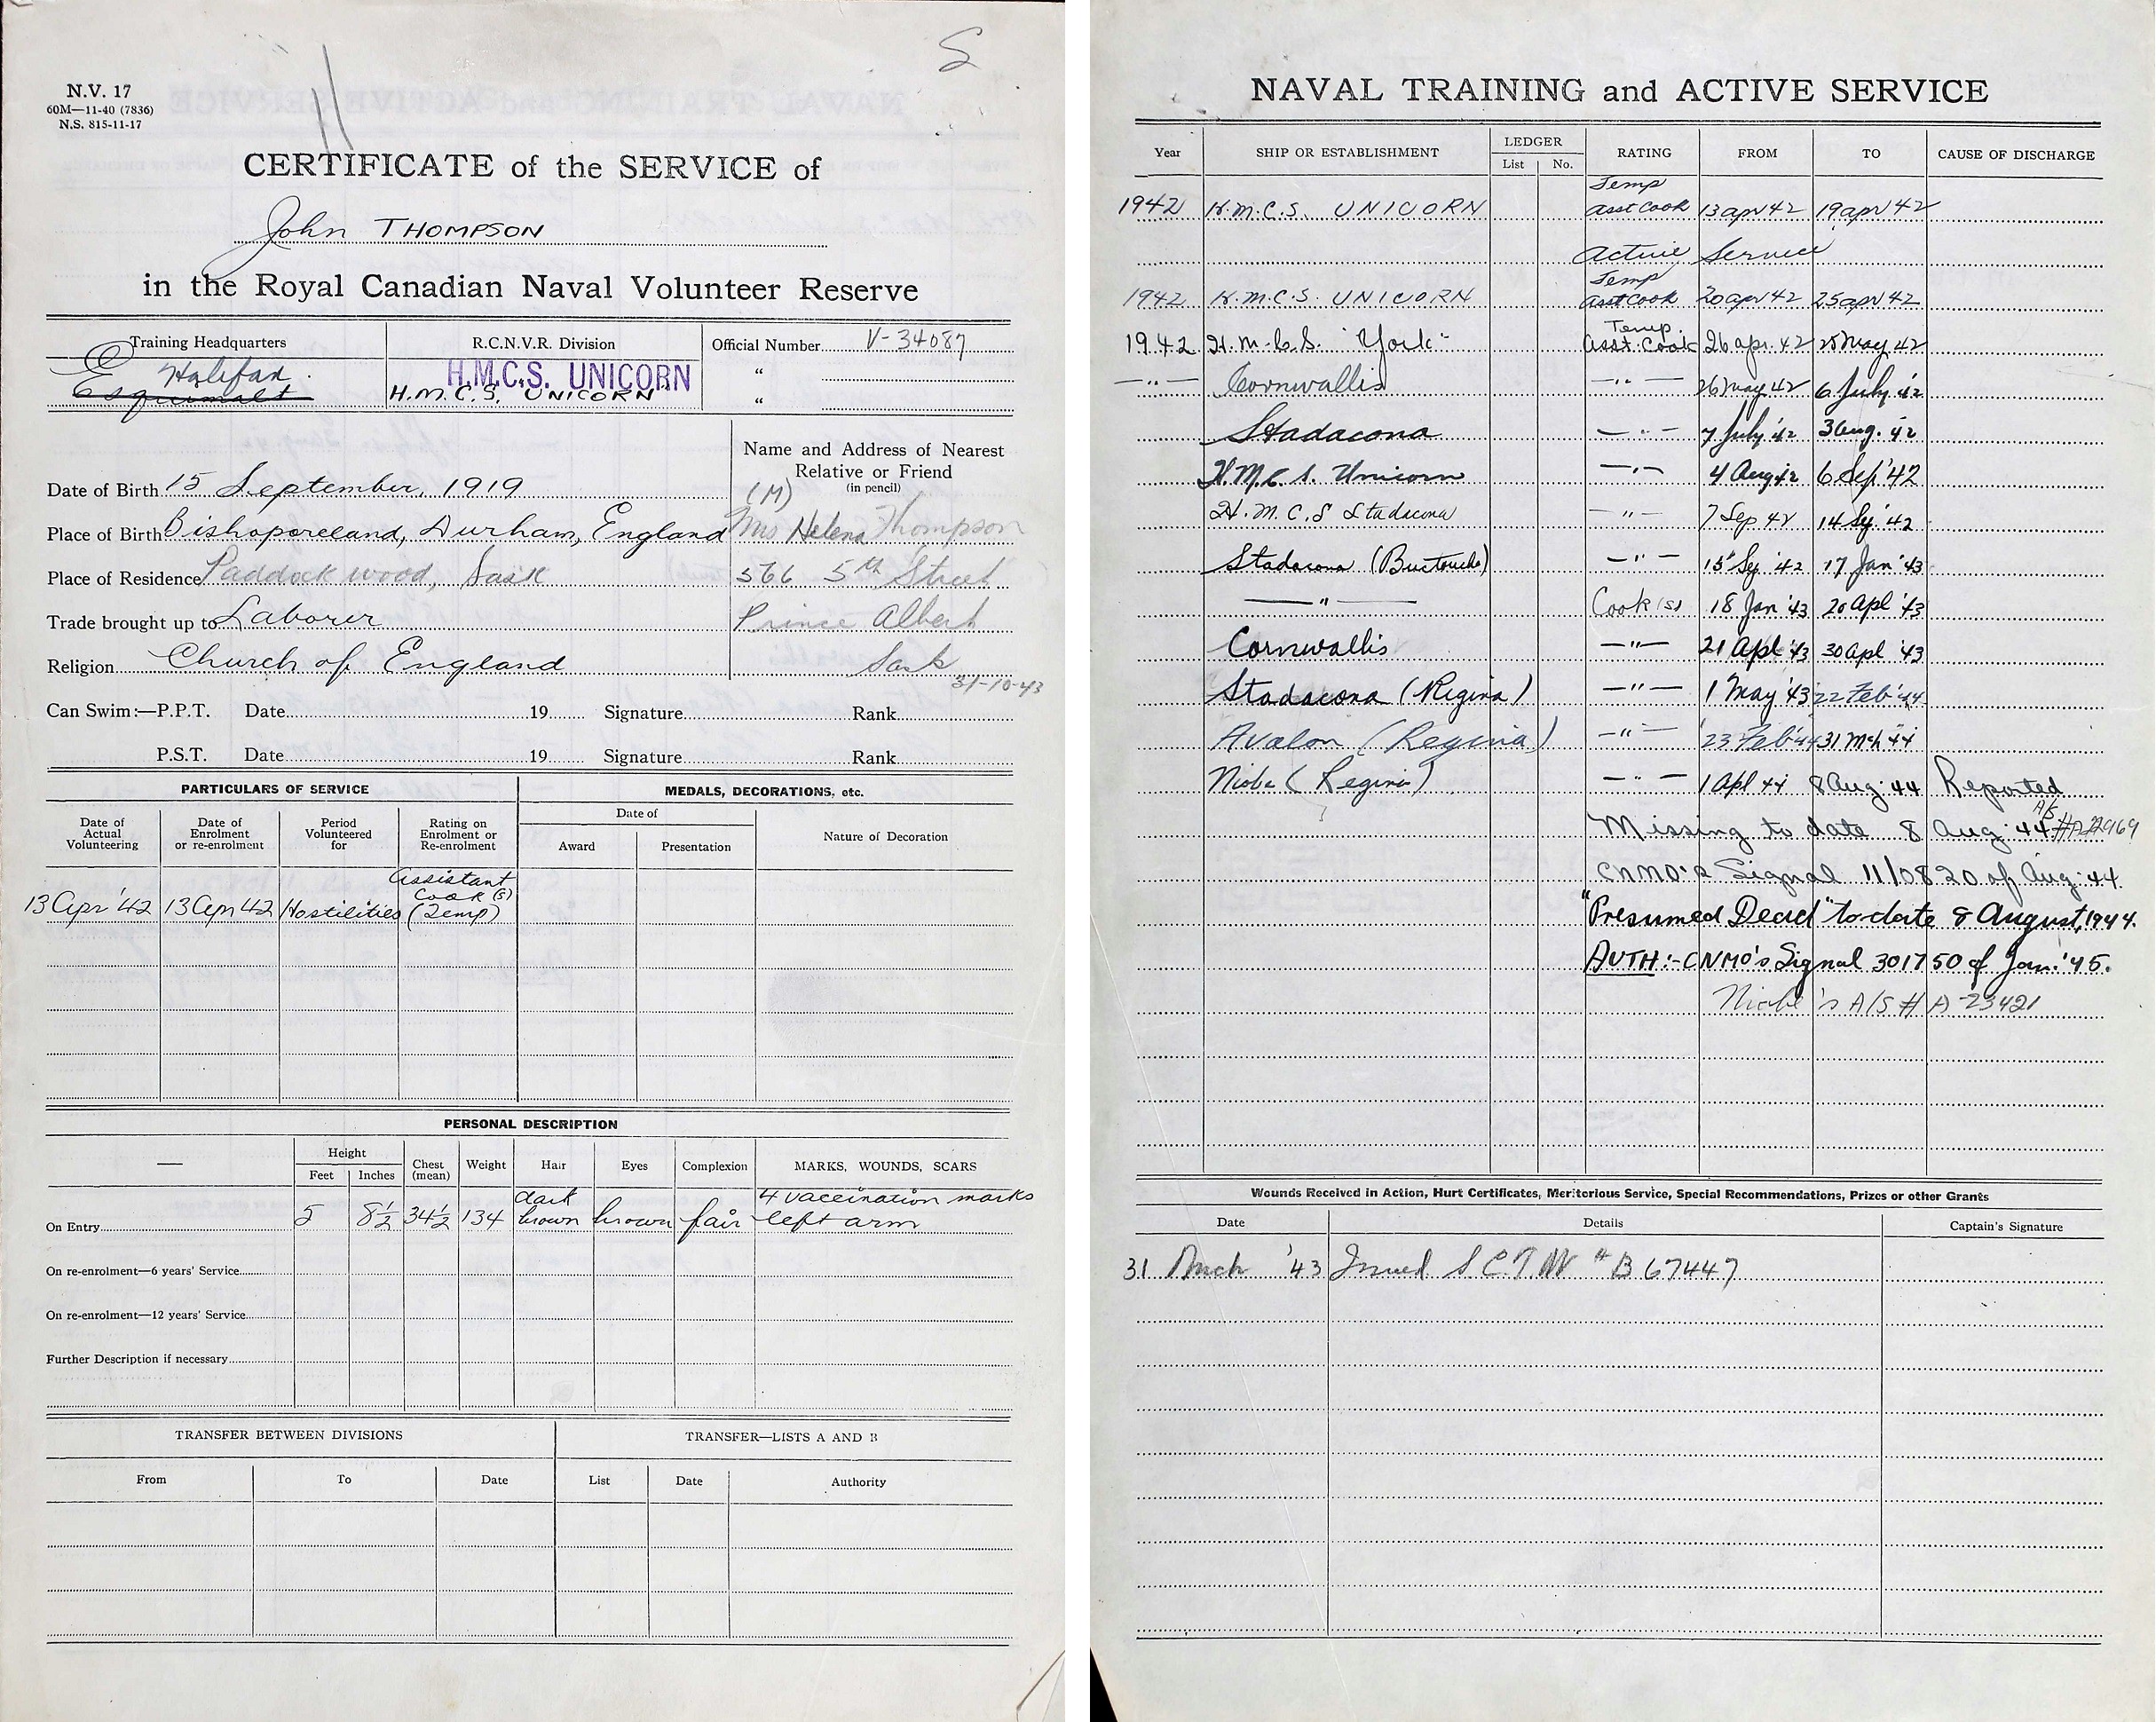 S
N.V. 17
60M—11-40 (7836)
N.S. 815-11-17
CERTIFICATE of the SERVICE of
John THOMPSON
in the Royal Canadian Naval Volunteer Reserve
Training Headquarters R.C.N.V.R. Division Official Number V-34087
E Halifax H.M.C.S. UNICORN "
Esquimalt H.M.C.S. UNICORN "
Name and Address of Nearest
Relative or Friend
(in pencil)
Date of Birth 15 September, 1919 (M)
Place of Birth Bishoporeland, Durham, England Mrs Helena Thompson
Place of Residence Paddock wood, Sask 566 5th Street
Trade brought up to Laborer Prince Albert
Religion Church of England Sask
31-10-43
Can Swim:—P.P.T. Date 19 Signature Rank
P.S.T. Date 19 Signature Rank
PARTICULARS OF SERVICE MEDALS, DECORATIONS, etc.
Date of Actual Volunteering Date of Enrolment or re-enrolment Period Volunteered for Rating on Enrolment or Re-enrolment Date of Nature of Decoration
Award Presentation
13 Apr '42 13 Apr 42 Hostilities Assistant Cook (S) (Temp)
PERSONAL DESCRIPTION
— Height Chest (mean) Weight Hair Eyes Complexion MARKS, WOUNDS, SCARS
Feet Inches
On Entry 5 8½ 34½ 134 dark brown brown fair 4 vaccination marks left arm
On re-enrolment—6 years' Service
On re-enrolment—12 years' Service
Further Description if necessary
TRANSFER BETWEEN DIVISIONS TRANSFER—LISTS A AND B
From To Date List Date Authority
NAVAL TRAINING and ACTIVE SERVICE
Year SHIP OR ESTABLISHMENT LEDGER RATING FROM TO CAUSE OF DISCHARGE
List No.
1942 H.M.C.S. UNICORN Temp Asst Cook 13 apr 42 19 apr 42
Active Service
1942 H.M.C.S. UNICORN Temp Asst Cook 20 apr 42 25 apr 42
1942 H.M.C.S. "York" Temp. Asst. Cook 26 apr. 42 25 May 42
—"— Cornwallis —"— 26 may 42 6 July 42
Stadacona —"— 7 July 42 3 Aug. 42
H.M.C.S. Unicorn —"— 4 Aug 42 6 Sep '42
H.M.C.S Stadacona —"— 7 Sep 42 14 Sep '42
Stadacona (Buctouche) —"— 15 Sep '42 17 Jan '43
—"— Cook (S) 18 Jan '43 20 Apl '43
Cornwallis —"— 21 Apl '43 30 Apl '43
Stadacona (Regina) —"— 1 May '43 22 Feb '44
Avalon (Regina) —"— 23 Feb '44 31 Mch '44
Niobe (Regina) —"— 1 Apl 44 8 Aug. 44 Reported
Missing to date 8 Aug. 44 A/S
CNMO's Signal 11/0820 of Aug. 44
"Presumed Dead" to date 8 August, 1944.
AUTH:- CNMO's Signal 301750 of Jan. '45.
Niobe's A/S # A-23421
Wounds Received in Action, Hurt Certificates, Meritorious Service, Special Recommendations, Prizes or other Grants
Date Details Captain's Signature
31 Mch '43 Issued # B 67447